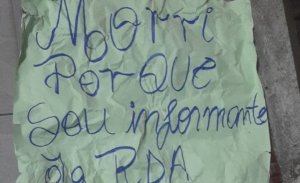 Moorri
PorQUE
sou informante
da RDA